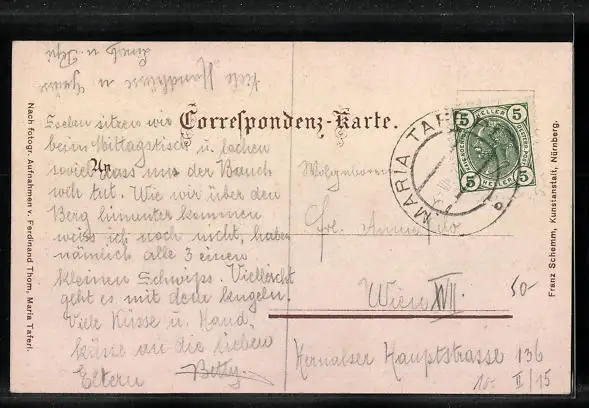 Correspondenz-Karte.
An
Soeben sitzen wir
beim Mittagstisch u. lachen
soviel dass uns der Bauch
weh tut. Wie wir über den
Berg hinunter kommen
weiss ich noch nicht, haben
nämlich alle 3 einen
kleinen Schwips. Vielleicht
geht es mit dem kugeln.
Viele Küsse u. Hand-
küsse an die lieben
Eltern Betty.
Viele Handküsse u.
u.
Wohlgeboren
Frl. Anna
Wien XVII.
Hernalser Hauptstrasse 136
10- II/15
50-
MARIA TAFERL
5 HELLER 5
5 5
Nach fotogr. Aufnahmen v. Ferdinand Thom, Maria Taferl.
Franz Schemm, Kunstanstalt, Nürnberg.